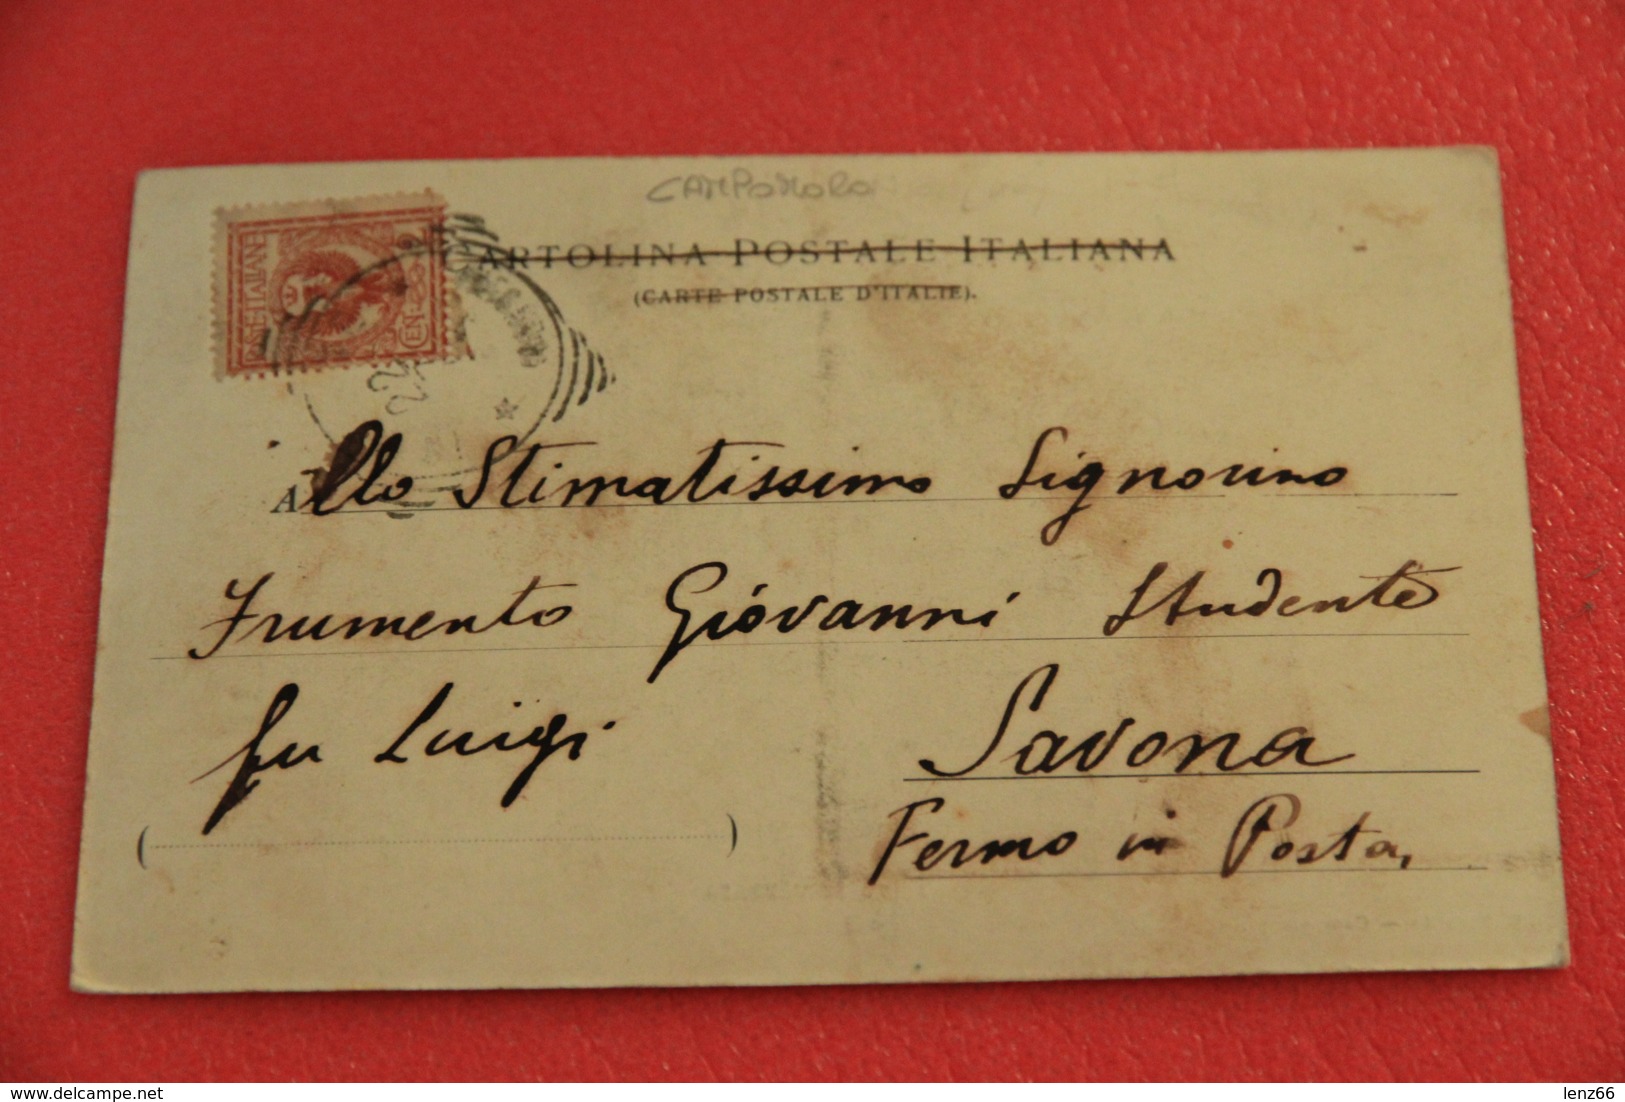 CAMPOMORO
CARTOLINA POSTALE ITALIANA
(CARTE POSTALE D'ITALIE).
POSTE ITALIANE
CEN. 2
22
Allo Stimatissimo Signorino
Frumento Giovanni Studente
fu Luigi
Savona
Fermo in Posta,
delcampe.net
lenz66